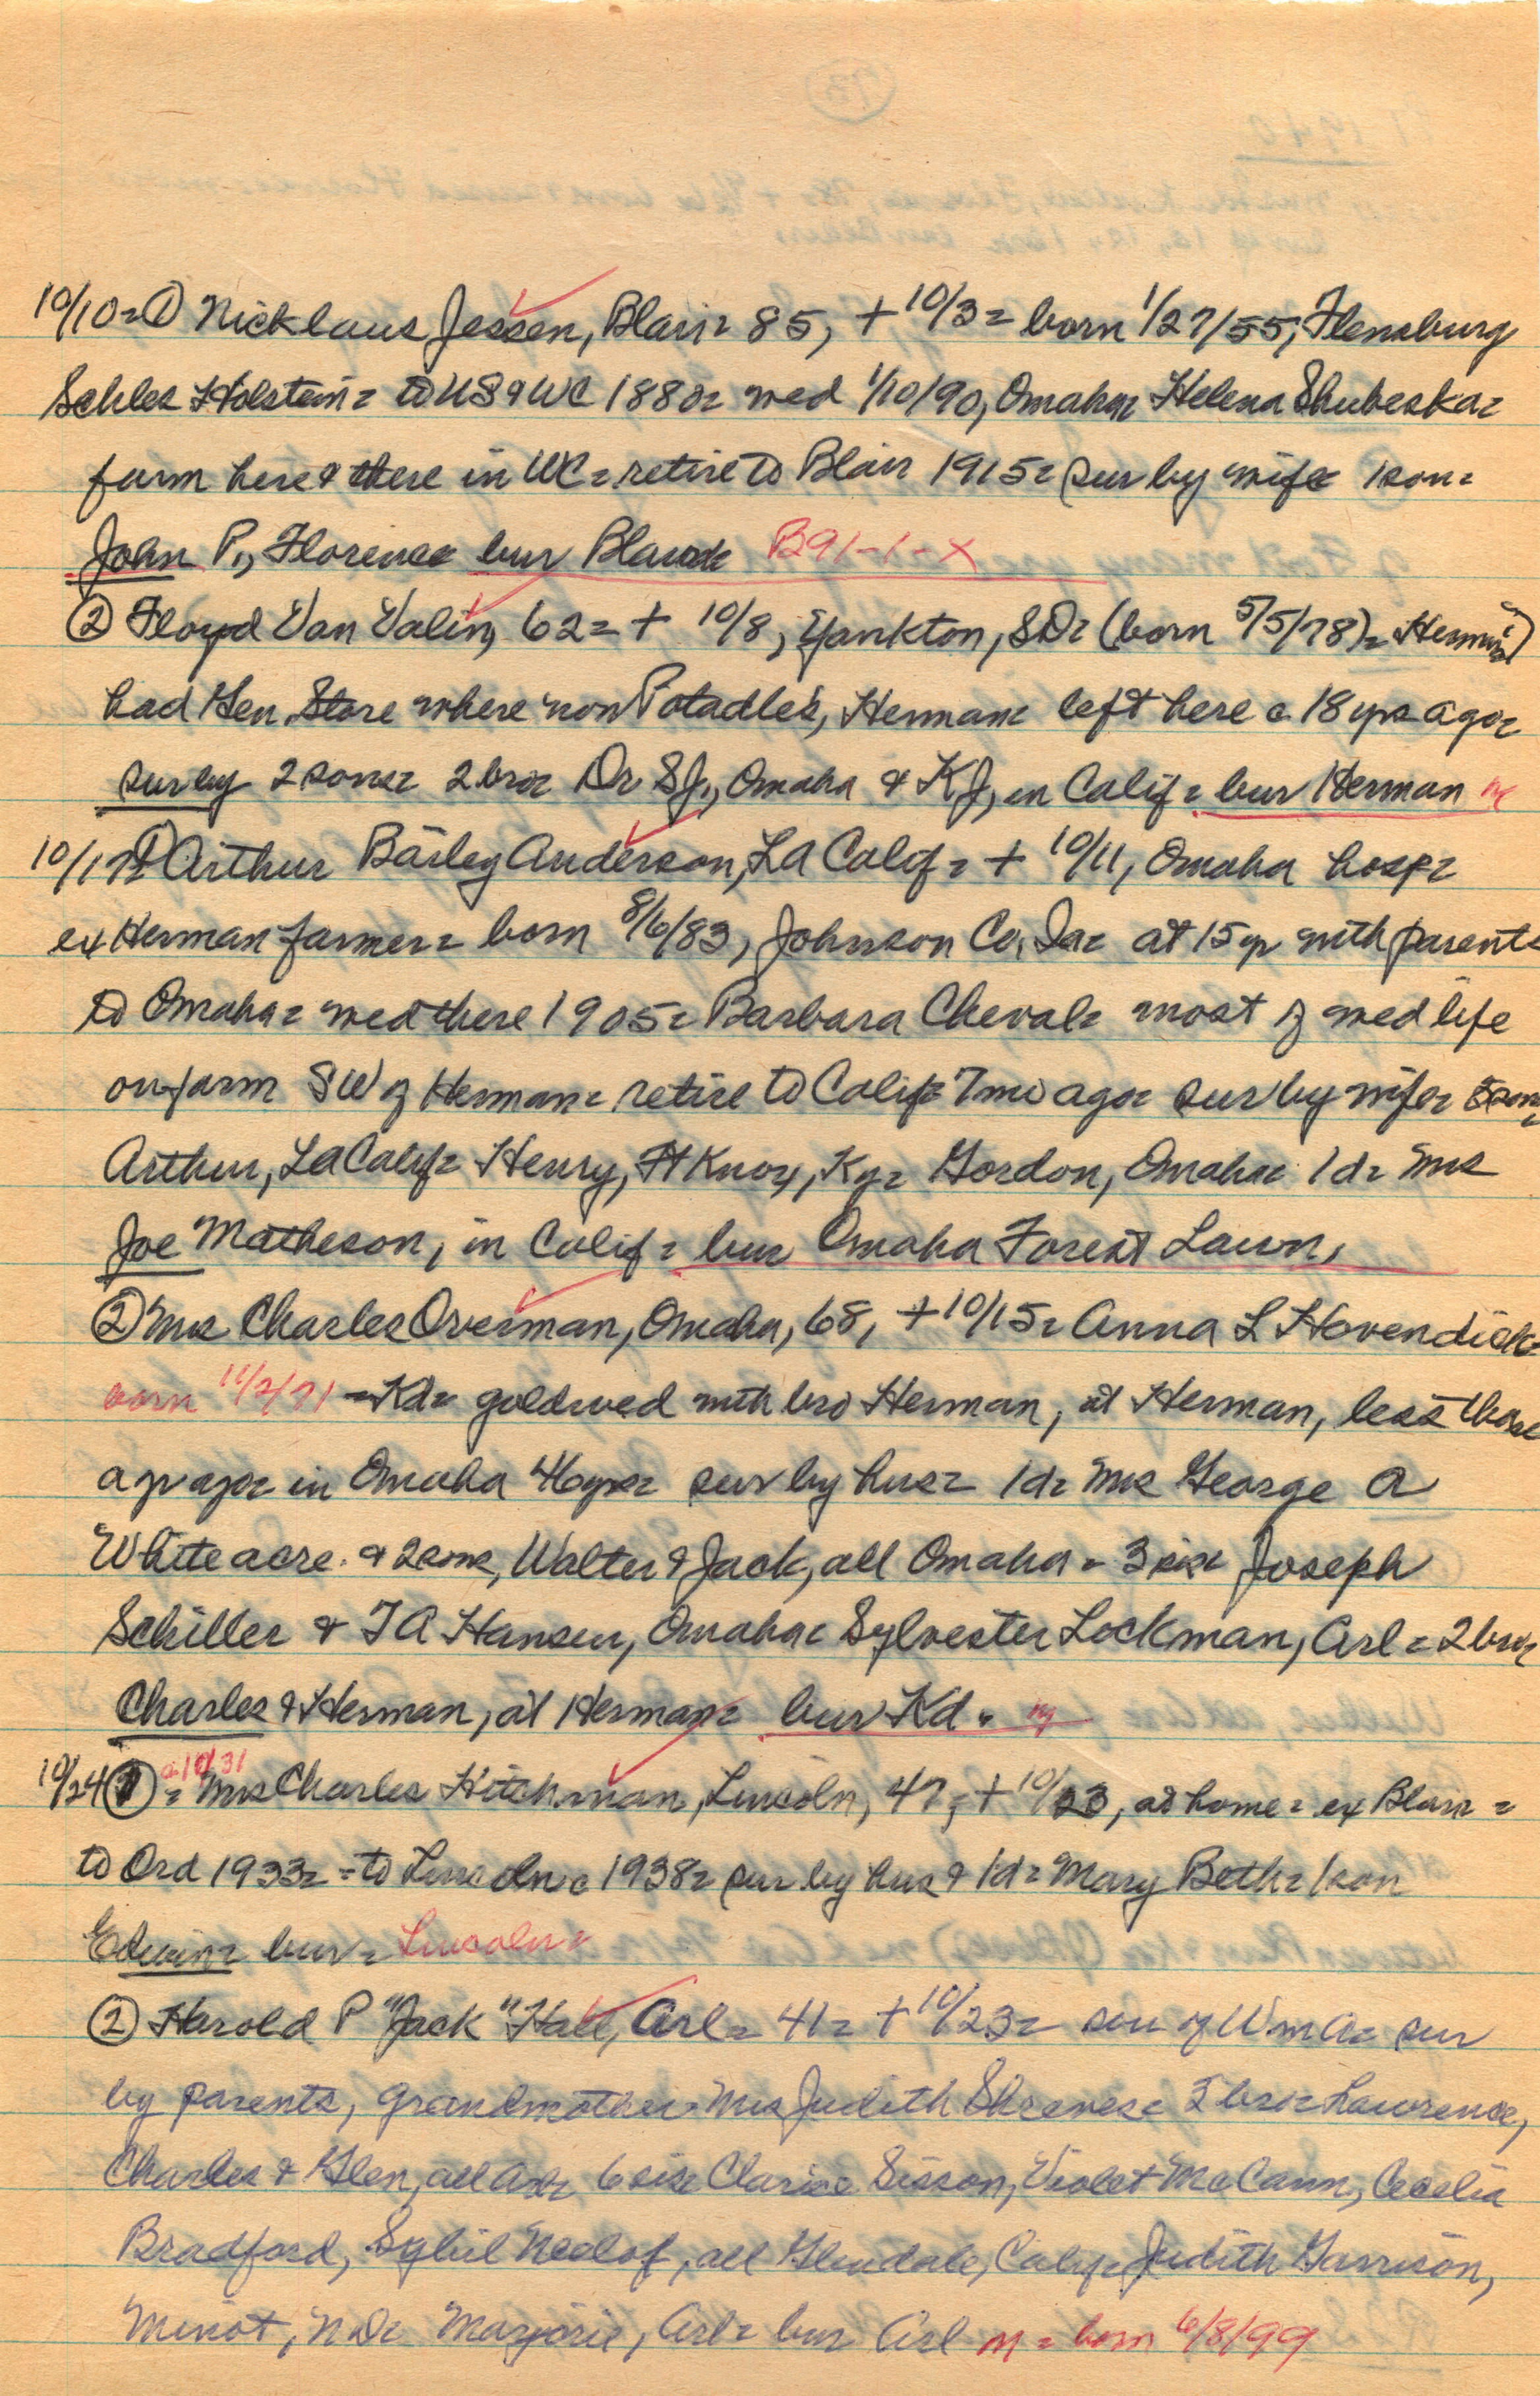 10/10= ① Nicklaus Jessen, Blair= 85, + 10/3= born 1/27/55, Flensburg
Schles Holstein= to US & WC 1880= wed 1/10/90, Omaha= Helena Shubeska=
farm here & there in WC= retire to Blair 1915= sur by wife 1 son=
John P., Florence bur Blair B91-1-X
② Floyd Van Valin, 62= + 10/8, Yankton, SD= (born 5/5/78)= Herman
had Gen Store where now Potadle's, Herman= left here c 18 yrs ago=
sur by 2 sons= 2 bro= Dr SJ., Omaha & KJ, in Calif= bur Herman
10/17= ① Arthur Bailey Anderson, LA Calif= + 10/11, Omaha hosp=
ex Herman farmer= born 8/6/83, Johnson Co. Ia= at 15 yr with parents
to Omaha= wed there 1905= Barbara Cheval= most of wed life
on farm SW of Herman= retire to Calif= 7 mo ago= sur by wife=
Arthur, LA Calif= Henry, Ft Knox, Ky= Gordon, Omaha= 1 d= Mrs
Joe Matheson, in Calif= bur Omaha Forest Lawn,
② Mrs Charles Overman, Omaha, 68, + 10/15= Anna L Hovendick=
born 11/2/71 = Kd= gold wed with bro Herman, at Herman, less than
a yr ago= in Omaha 46 yrs= sur by hus= 1 d= Mrs George A
Whiteacre. & 2 sons, Walter & Jack, all Omaha= 3 sis= Joseph
Schiller & TA Hansen, Omaha= Sylvester Lockman, Arl= 2 bro=
Charles & Herman, at Herman= bur Kd.
10/24 ① a 10/31 = Mrs Charles Hitchman, Lincoln, 47, + 10/23, at home= ex Blair=
to Ord 1933= = to Lincoln c 1938= sur by hus & 1 d= Mary Beth= 1 son
Edwin= bur= Lincoln=
② Harold P "Jack" Hall, Arl= 41= + 10/23= son of Wm A= sur
by parents, grandmother Mrs Judith Shreves= 3 bro= Lawrence,
Charles & Glen, all Arl= 6 sis= Clarice Sisson, Violet McCann, Cecelia
Bradford, Sybil Neelof, all Glendale, Calif= Judith Garrison,
Minot, ND= Marjorie, Arl= bur Arl m = born 6/8/99